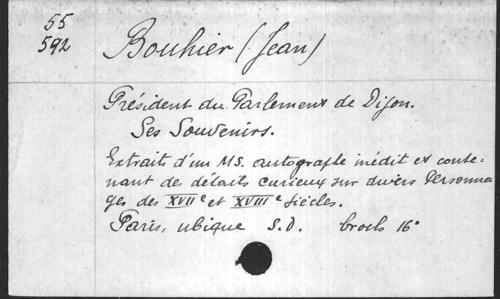 55
592
Bouhier (Jean)
Président du Parlement de Dijon.
Ses Souvenirs.
Extraits d'un MS. autographe inédit et conte-
nant des détails curieux sur divers Personna
ges des XVIIe et XVIIIe siècles.
Paris, ubique S.D. broch 16°